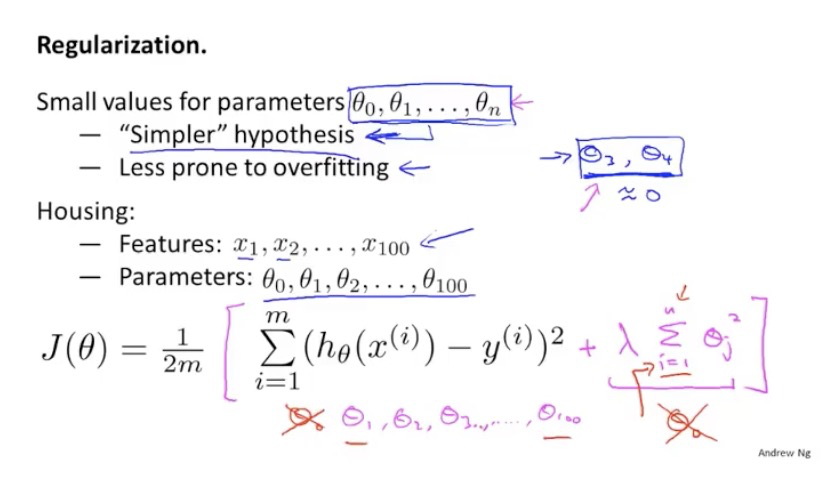 Regularization.
Small values for parameters θ₀, θ₁, . . . , θₙ
— “Simpler” hypothesis
— Less prone to overfitting
θ₃, θ₄
≈ 0
Housing:
— Features: x₁, x₂, . . . , x₁₀₀
— Parameters: θ₀, θ₁, θ₂, . . . , θ₁₀₀
J(θ) = 1/2m [ ∑_{i=1}^{m} (h_θ(x^{(i)}) − y^{(i)})² + λ ∑_{i=1}^{n} θ_j² ]
θ₀ θ₁, θ₂, θ₃, ......, θ₁₀₀ θ₀
Andrew Ng